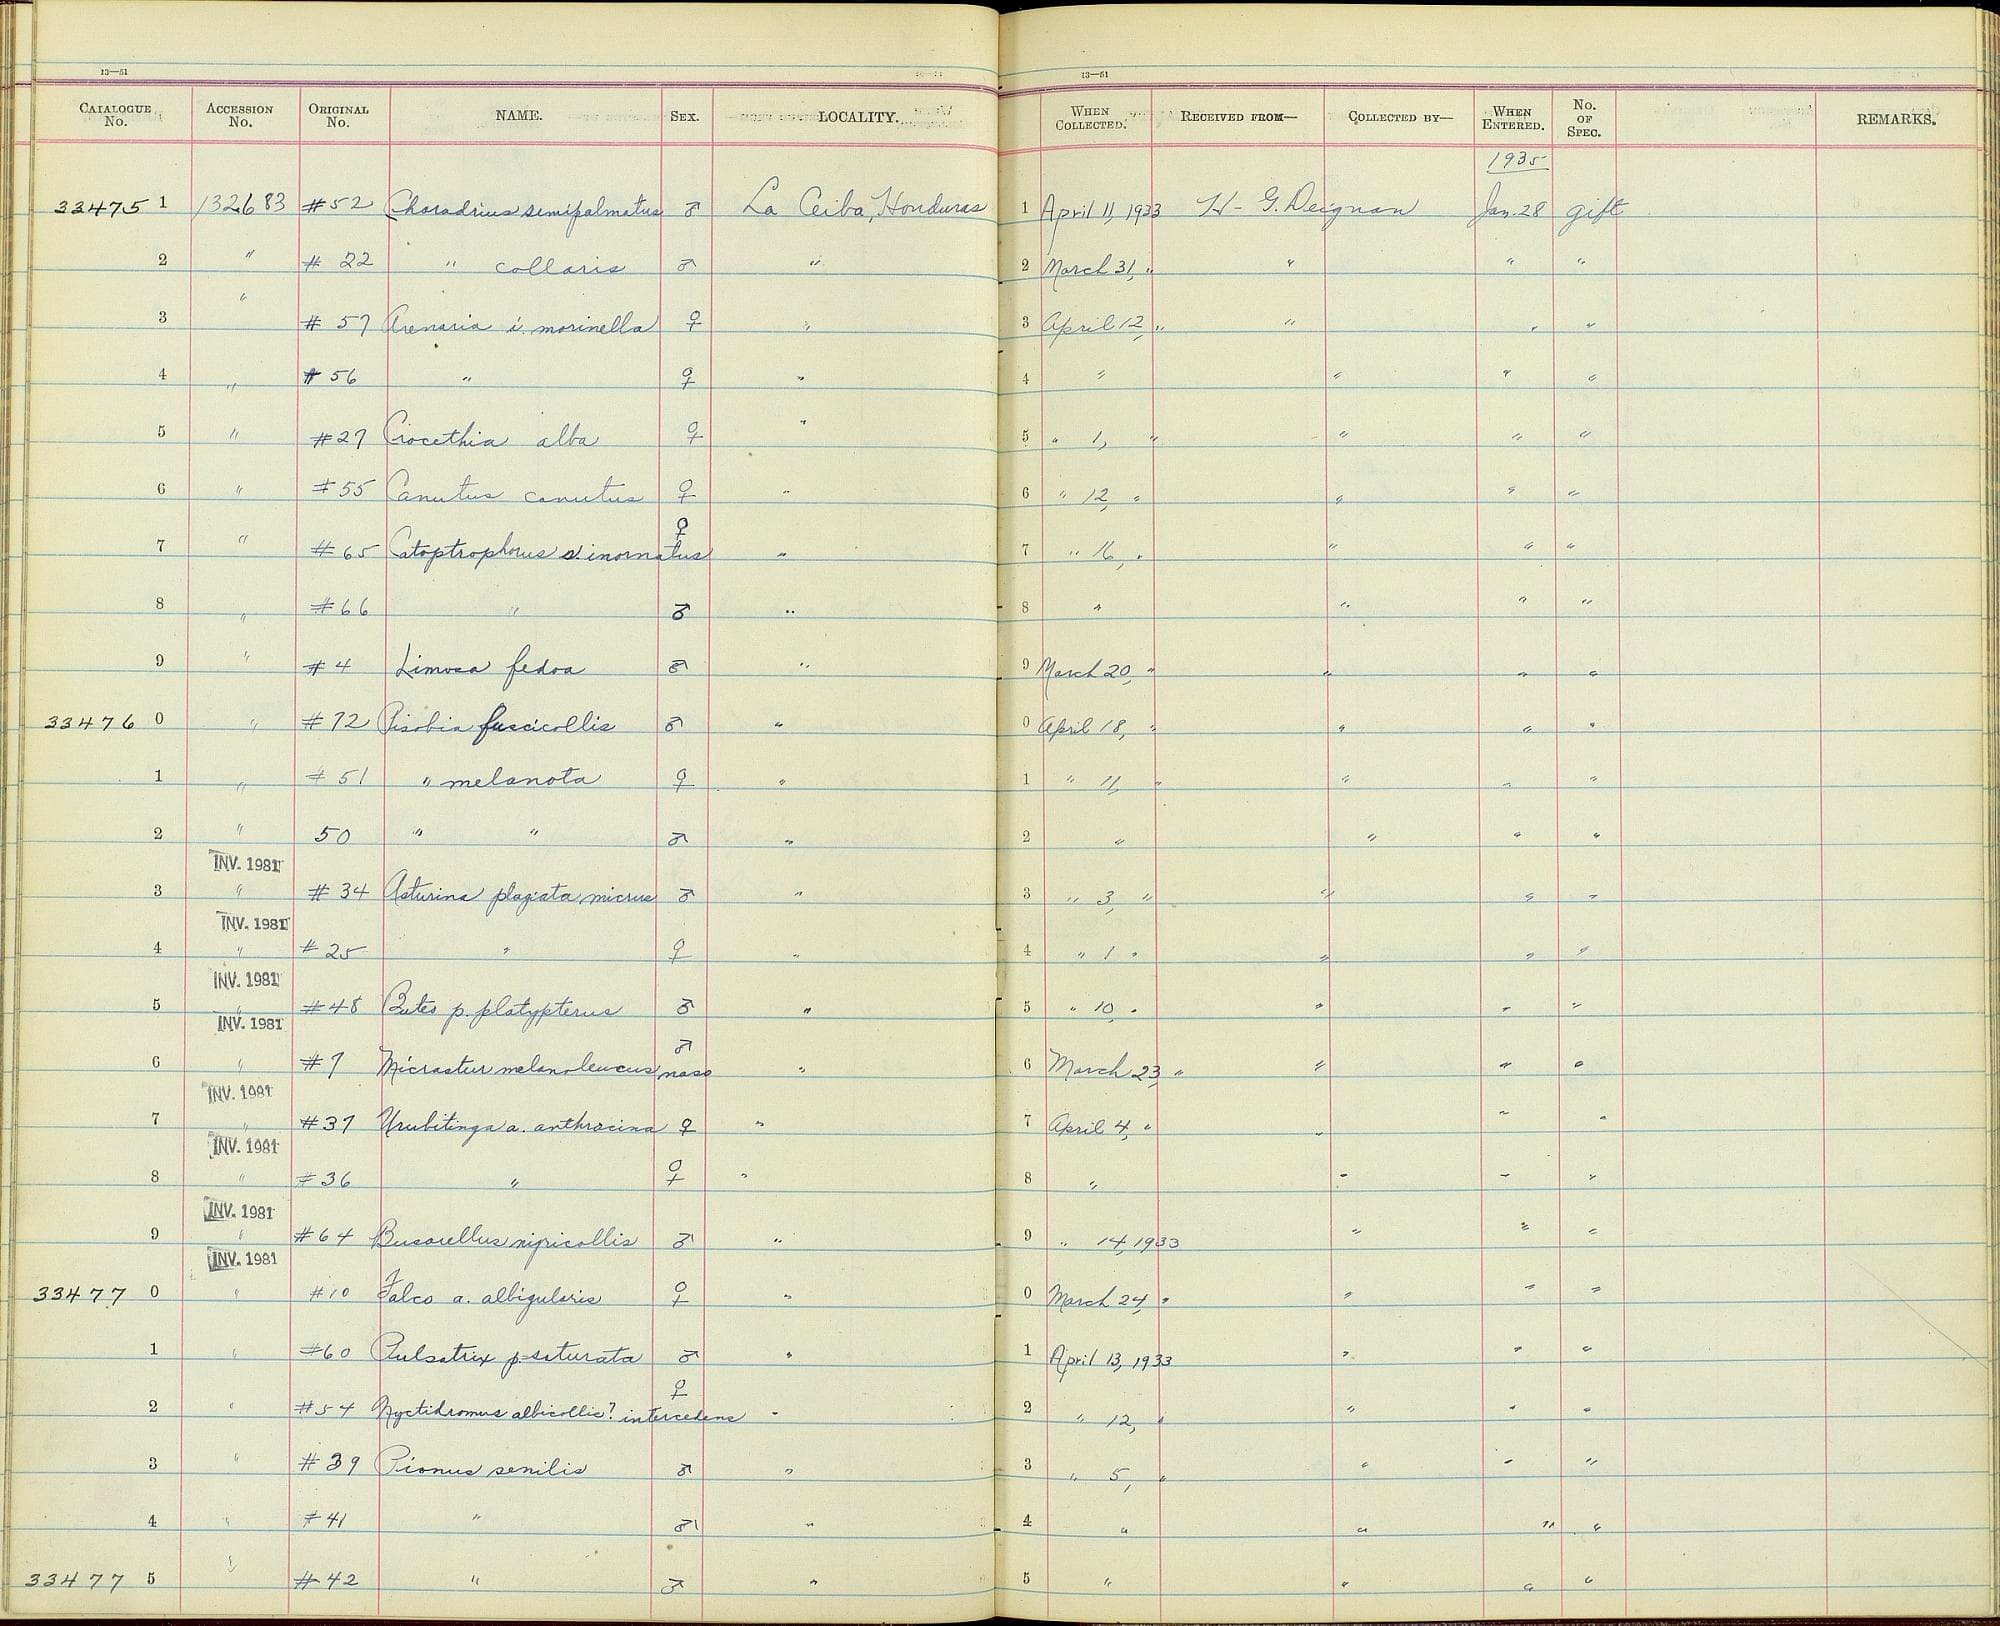 13—51
13—51
CATALOGUE No. ACCESSION No. ORIGINAL No. NAME. SEX. LOCALITY. WHEN COLLECTED. RECEIVED FROM— COLLECTED BY— WHEN ENTERED. No. OF SPEC. REMARKS.
1935
33475 1 132683 #52 Charadrius semipalmatus ♂ La Ceiba, Honduras 1 April 11, 1933 H- G. Deignan Jan. 28 gift
2 " #22 " collaris ♂ " 2 March 31, " " " "
3 " #57 Arenaria i. morinella ♀ " 3 April 12, " " " "
4 " #56 " ♀ " 4 " " " "
5 " #27 Crocethia alba ♀ " 5 " 1, " " " "
6 " #55 Canutus canutus ♀ " 6 " 12, " " " "
7 " #65 Catoptrophorus s. inornatus ♀ " 7 " 16, " " " "
8 " #66 " ♂ " 8 " " " "
9 " #4 Limosa fedoa ♂ " 9 March 20, " " " "
33476 0 " #72 Pisobia fuscicollis ♂ " 0 April 18, " " " "
1 " #51 " melanota ♀ " 1 " 11, " " " "
2 " 50 " " ♂ " 2 " " " "
INV. 1981
3 " #34 Asturina plagiata micrus ♂ " 3 " 3, " " " "
INV. 1981
4 " #25 " ♀ " 4 " 1 " " " "
INV. 1981
5 " #48 Buteo p. platypterus ♂ " 5 " 10, " " " "
INV. 1981
6 " #7 Micrastur melanoleucus naso ♂ " 6 March 23, " " " "
INV. 1981
7 " #37 Urubitinga a. anthracina ♀ " 7 April 4, " " " "
INV. 1981
8 " #36 " ♀ " 8 " " " "
INV. 1981
9 " #64 Busarellus nigricollis ♂ " 9 " 14, 1933 " " "
INV. 1981
33477 0 " #10 Falco a. albigularis ♀ " 0 March 24, " " " "
1 " #60 Pulsatrix p. saturata ♂ " 1 April 13, 1933 " " "
2 " #54 Nyctidromus albicollis? intercedens ♀ " 2 " 12, " " " "
3 " #39 Pionus senilis ♂ " 3 " 5, " " " "
4 " #41 " ♂ " 4 " " " "
33477 5 " #42 " ♂ " 5 " " " "